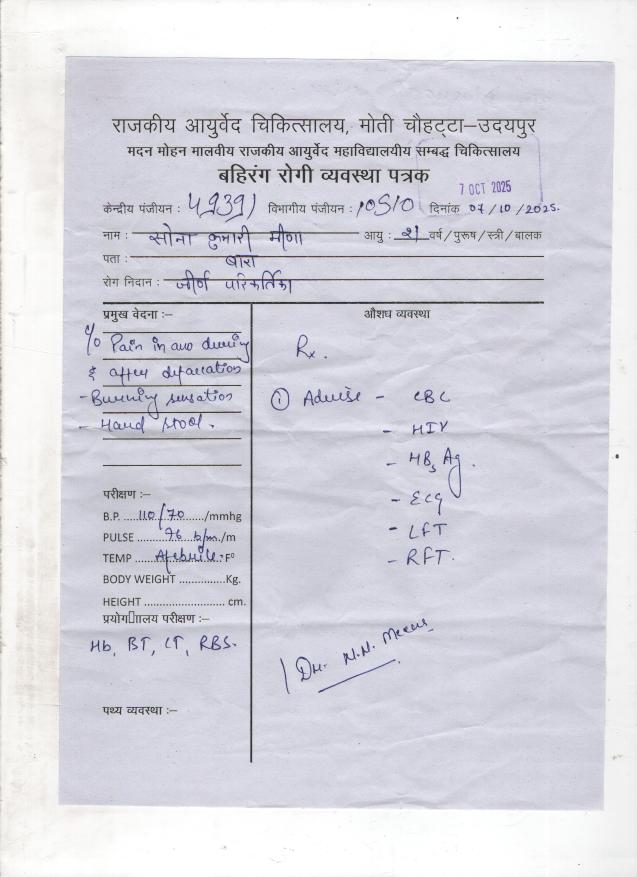 राजकीय आयुर्वेद चिकित्सालय, मोती चौहट्टा–उदयपुर
मदन मोहन मालवीय राजकीय आयुर्वेद महाविद्यालयीय सम्बद्ध चिकित्सालय
बहिरंग रोगी व्यवस्था पत्रक
7 OCT 2025
केन्द्रीय पंजीयन : विभागीय पंजीयन : 10510 दिनांक 07/10/2025.
नाम : सोना कुमारी मीणा आयु : 21 वर्ष/पुरूष/स्त्री/बालक
पता : बारा
रोग निदान : जीर्ण परिकर्तिका
प्रमुख वेदना :–
औशध व्यवस्था
c/o Pain in ano during
& after defaecation
- Burning sensation
- Hard stool.
Rx.
① Advise - CBC
- HIV
- HBsAg.
- ECG
- LFT
- RFT.
परीक्षण :–
B.P. ....110/70....../mmhg
PULSE .......76 b/m./m
TEMP .....Afebrile.F⁰
BODY WEIGHT ..............Kg.
HEIGHT ........................ cm.
प्रयोग▯ालय परीक्षण :–
Hb, BT, CT, RBS.
Dr. N.N. Meena
पथ्य व्यवस्था :–